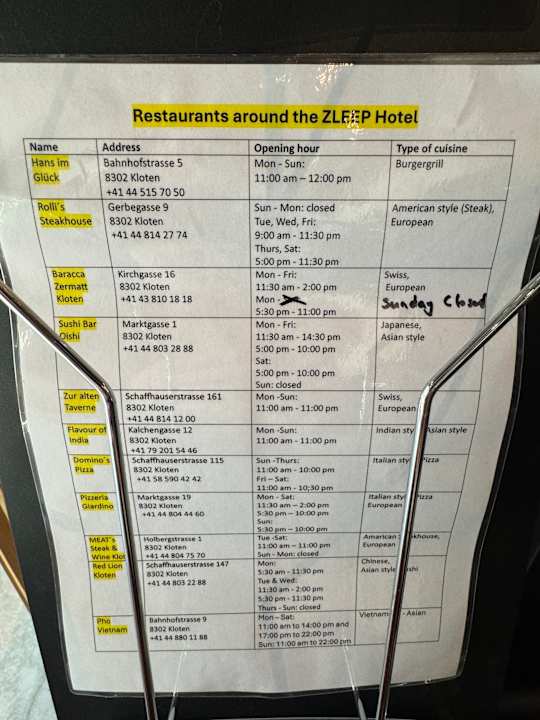 Restaurants around the ZLEEP Hotel
Name Address Opening hour Type of cuisine
Hans im Bahnhofstrasse 5 Mon - Sun: Burgergrill
Glück 8302 Kloten 11:00 am – 12:00 pm
+41 44 515 70 50
Rolli´s Gerbegasse 9 Sun - Mon: closed American style (Steak),
Steakhouse 8302 Kloten Tue, Wed, Fri: European
+41 44 814 27 74 9:00 am - 11:30 pm
Thurs, Sat:
5:00 pm - 11:30 pm
Baracca Kirchgasse 16 Mon - Fri: Swiss,
Zermatt 8302 Kloten 11:30 am - 2:00 pm European
Kloten +41 43 810 18 18 Mon - Sunday Closed
5:30 pm - 11:00 pm
Sushi Bar Marktgasse 1 Mon - Fri: Japanese,
Oishi 8302 Kloten 11:30 am - 14:30 pm Asian style
+41 44 803 28 88 5:00 pm - 10:00 pm
Sat:
5:00 pm - 10:00 pm
Sun: closed
Zur alten Schaffhauserstrasse 161 Mon -Sun: Swiss,
Taverne 8302 Kloten 11:00 am - 11:00 pm European
+41 44 814 12 00
Flavour of Kalchengasse 12 Mon -Sun: Indian Asian style
India 8302 Kloten 11:00 am - 11:00 pm
+41 79 201 54 46
Domino´s Schaffhauserstrasse 115 Sun -Thurs: Italian Pizza
Pizza 8302 Kloten 11:00 am - 10:00 pm
+41 58 590 42 42 Fri – Sat:
11:00 am - 10;30 pm
Pizzeria Marktgasse 19 Mon - Sat: Italian Pizza
Giardino 8302 Kloten 11:30 am – 2:00 pm European
+41 44 804 44 60 5:30 pm – 10:00 pm
Sun:
5:30 pm – 10:00 pm
MEAT´s Holbergstrasse 1 Tue -Sat:
Steak & 8302 Kloten 11:00 am – 11:00 pm European
Wine +41 44 804 75 70 Sun - Mon: closed
Red Lion Schaffhauserstrasse 147 Mon: Chinese,
Kloten 8302 Kloten 5:30 am - 11:30 pm Asian
+41 44 803 22 88 Tue & Wed:
11:30 am - 2:00 pm
5:30 pm - 11:30 pm
Thurs - Sun: closed
Pho Bahnhofstrasse 9 Mon – Sat: - Asian
Vietnam 8302 Kloten 11:00 am to 14:00 pm and
+41 44 880 11 88 17:00 pm to 22:00 pm
Sun: 11:00 am to 22:00 pm